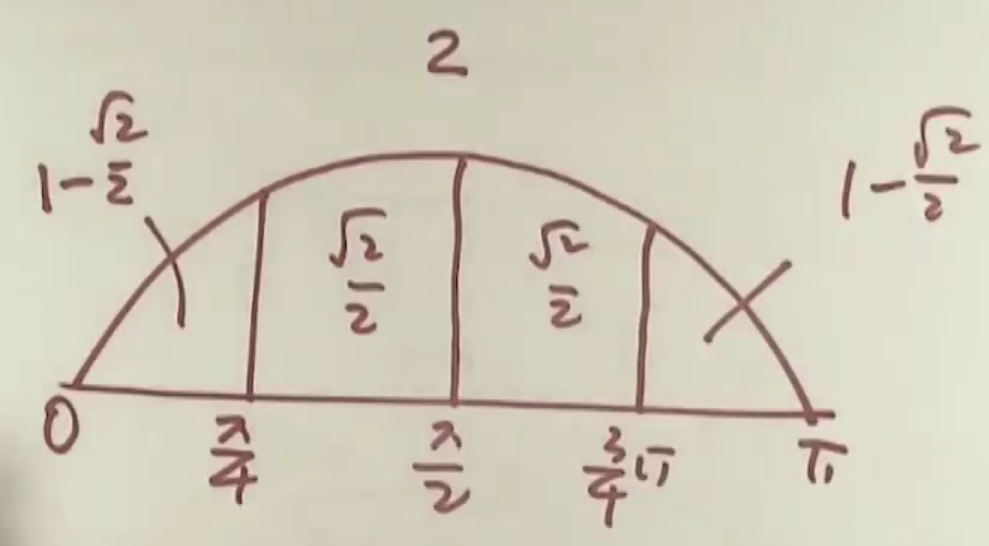 2
1-√2/2
1-√2/2
√2/2
√2/2
0
π/4
π/2
3/4 π
π